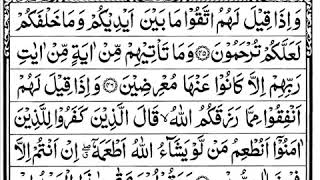 وَاِذَا قِيۡلَ لَهُمُ اتَّقُوۡا مَا بَيۡنَ اَيۡدِيۡكُمۡ وَمَا خَلۡفَكُمۡ
لَعَلَّكُمۡ تُرۡحَمُوۡنَ ﴿٤٥﴾ وَمَا تَاۡتِيۡهِمۡ مِّنۡ اٰيَةٍ مِّنۡ اٰيٰتِ
رَبِّهِمۡ اِلَّا كَانُوۡا عَنۡهَا مُعۡرِضِيۡنَ ﴿٤٦﴾ وَاِذَا قِيۡلَ لَهُمۡ
اَنۡفِقُوۡا مِمَّا رَزَقَكُمُ اللّٰهُ ۙ قَالَ الَّذِيۡنَ كَفَرُوۡا لِلَّذِيۡنَ
اٰمَنُوۡۤا اَنُطۡعِمُ مَنۡ لَّوۡ يَشَآءُ اللّٰهُ اَطۡعَمَهٗۤ ۖ اِنۡ اَنۡتُمۡ اِلَّا